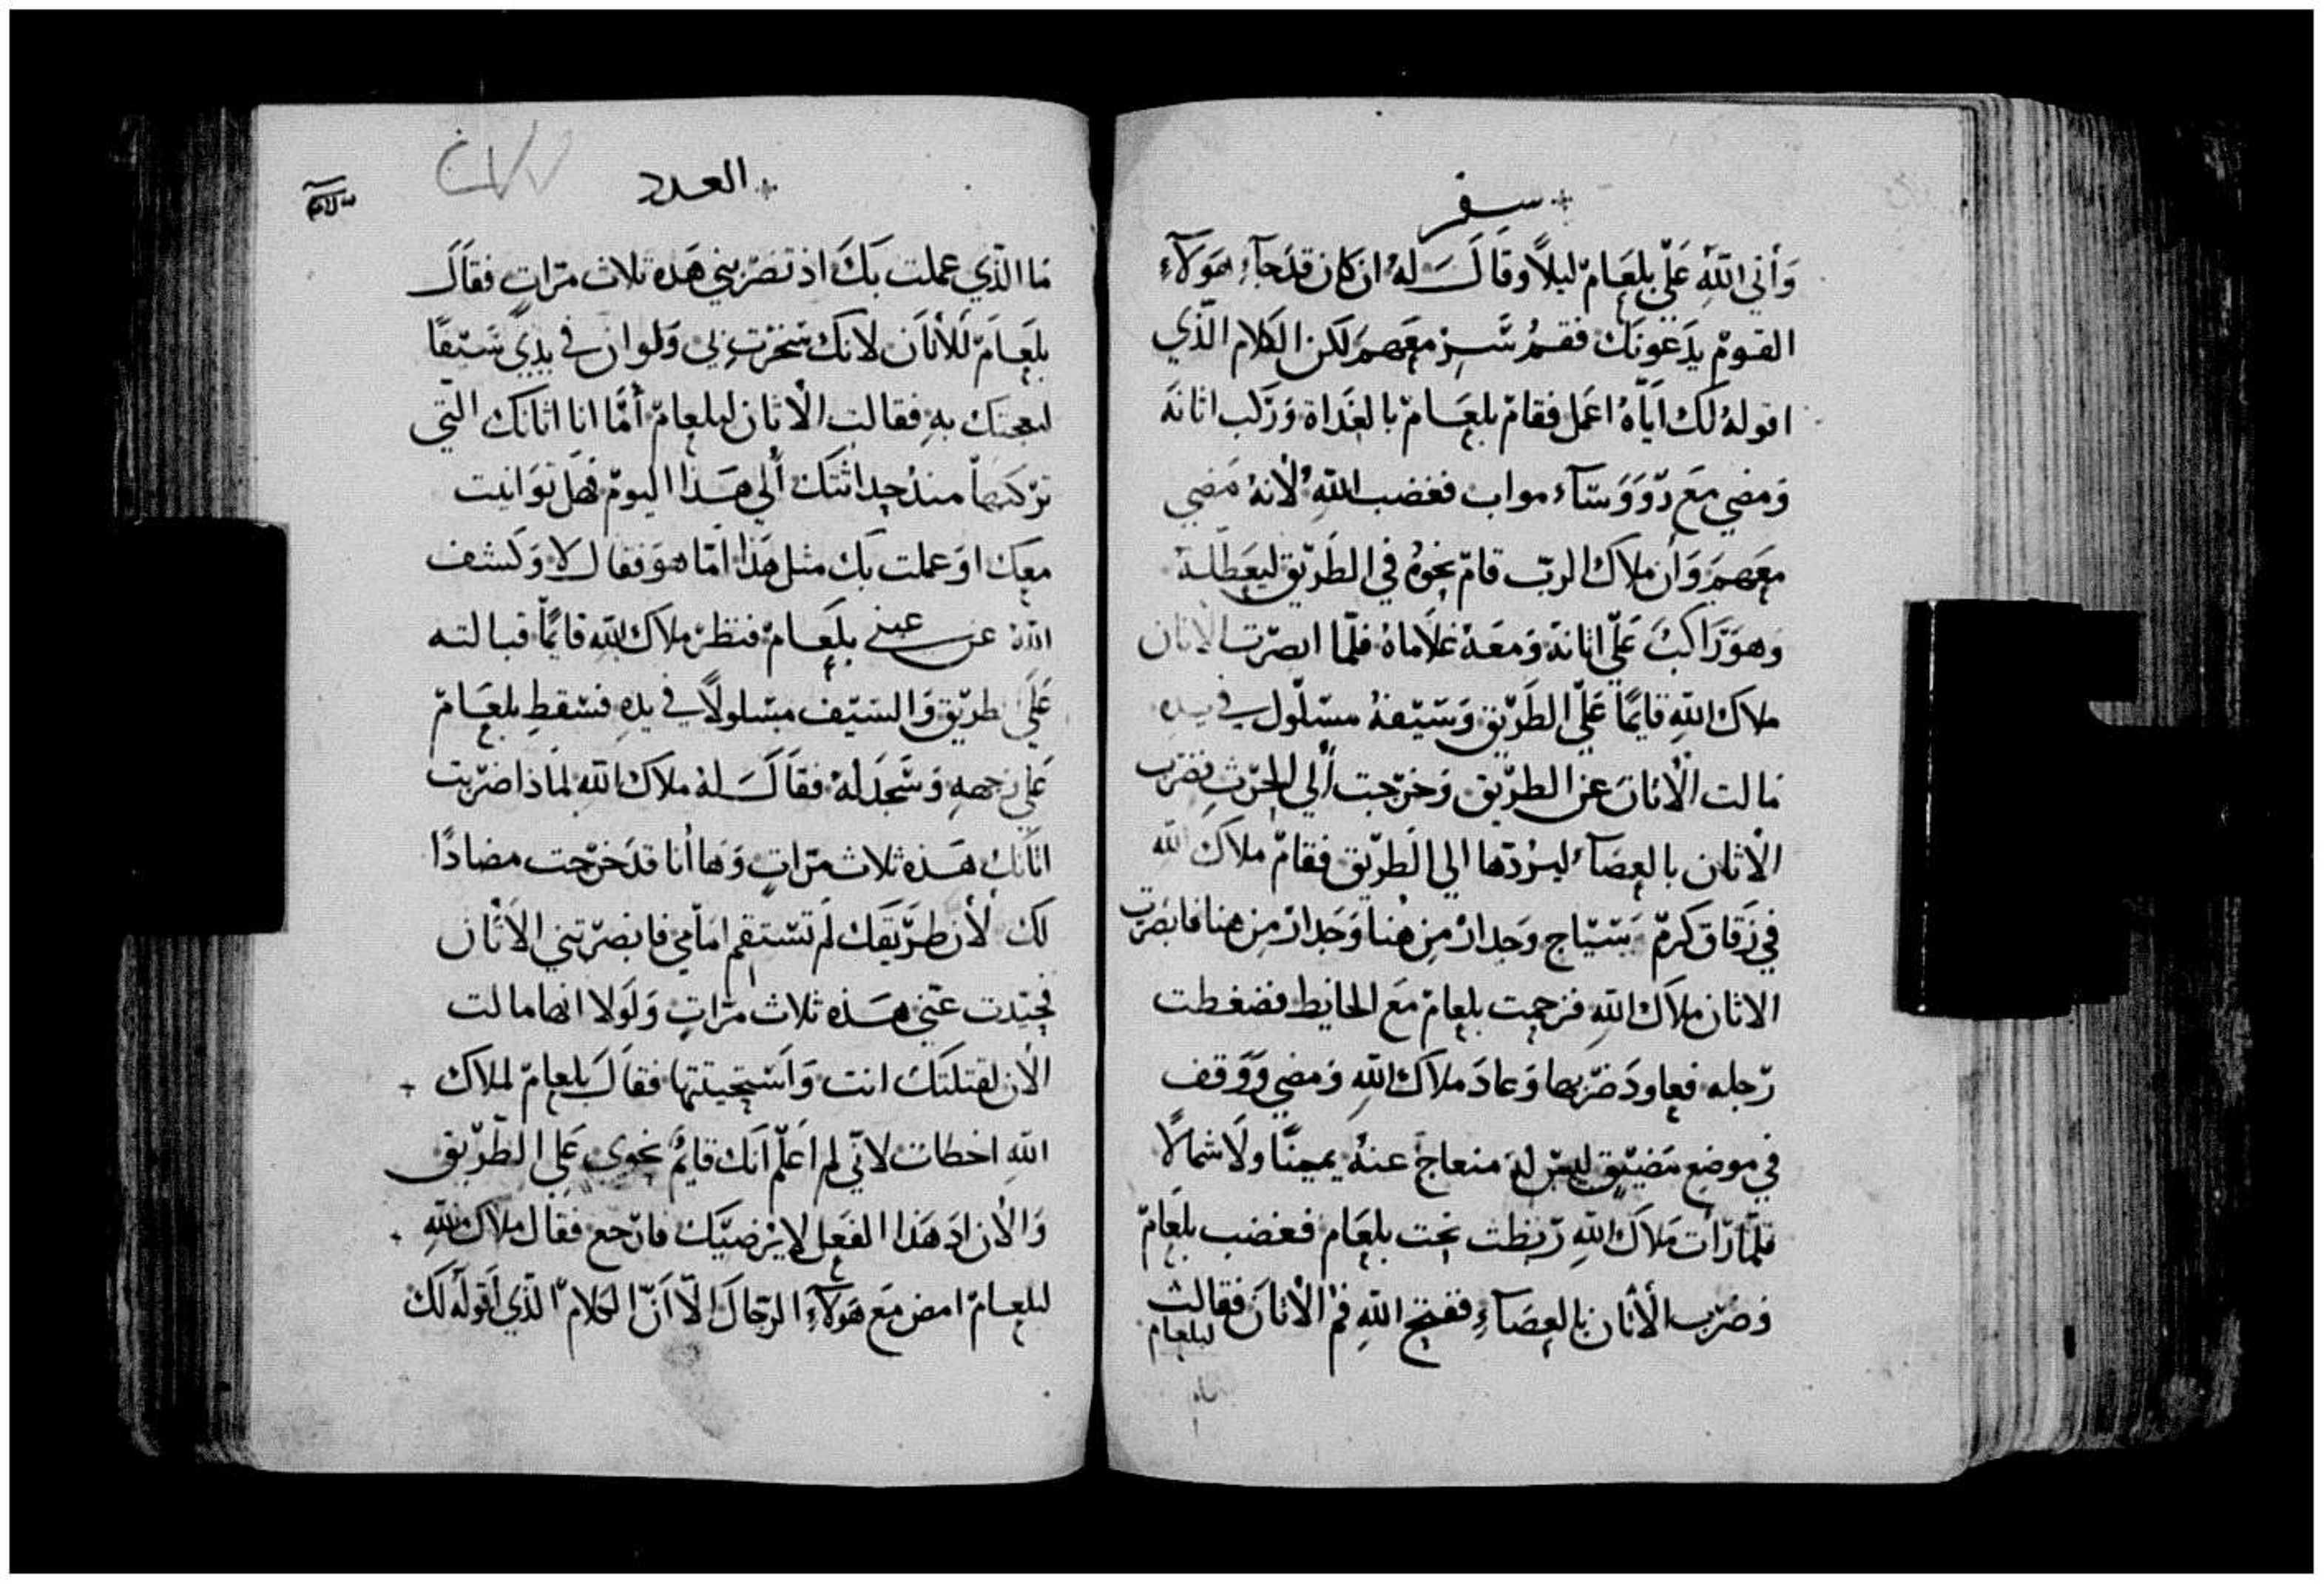 سفر
وَأتي اللهِ عَلي بلعَام ليلاً وقالَ لهُ ان كان قد جآءِ هَولآءِ
القومْ يدَعونَك فقمْ سِّرْ معَهم لكن الكلام الّذي
اقولهُ لك ايّاهُ اعَمل فقامْ بلعَام بالغَداة وَرَكب اتانهَ
وَمضي معَ رَووَسَآء مواب فغضب اللهِ لأنهُ مَضي
معَهم وَأن ملاك الربّ قامْ نحوهُ في الطَريق ليعَطلهُ
وَهوَ رَاكبَ عَلي اتانهَ وَمعَهُ غلاَماهُ فلّما ابصرَت الاتان
ملاك اللهِ قايمًا عَلي الطَريق وَسَيفهُ مسَلول في يدهِ
مَالت الأتانَ عن الطَريق وَخرَجت ألي الحَرثِ فضرَب
الأتان بالعصَآء ليرُدّها الي الطَريق فقامْ ملاك الله
في زَقاق كرمْ بسَياج وَجدارْ مِن هُنا وَجَدارْ مِن هنا فابصَرت
الاتان ملاَك اللهِ فزحمت بلعامْ مَع الحايط فضغطت
رَجله فعاودَ ضرَبها وَعادَ ملاَك اللهِ وَمضي وَوَقف
في موضع مَضيّق ليسَ لهَ منعاج عنهُ يمينًا ولاَ شمالاً
فلّما رَأت مَلاَك اللهِ رَبطت تحت بلعَام فغضب بلعَامْ
وَضرَب الأتان بالعصَآءِ ففتح اللهِ فمْ الأتانَ فقالت لبلعام
العدد
مَا الّذي عملت بكَ اذ تضرَبني هَذه ثلاث مرّاتٍ فقالَ
بلعَامَ للأتانَ لانكَ سَخرْتِ بي وَلو ان في يدِي سَيفًا
لبعجتك بهِ فقالت الأتان لبلعامْ أمَّا انا اتانك التّي
ترَكبها منذ حداثتكَ ألي هَذا اليومْ فهَل توَانيت
معَك اوَ عملت بكَ مثل هَذا امّا هوَ فقال لا وَكشف
اللهُ عن عيني بلعَامْ فنظرْ ملاك اللهِ قايمًا قبالته
عَلَي الطَريق وَالسَيف مسَلولاً في يدهِ فسَقط بلعَامْ
عَلي وَجههِ وَسَجدَ لهُ فقالَ لهُ ملاَك اللهِ لماذا ضرَبت
اتانك هَذه ثلاث مرّاتٍ وَها أنا قد خرَجت مضادًا
لكَ لأن طرَيقَك لَم تسَتقم امَامي فابصرَتني الاَتان
فحيَدت عنّي هَذه ثلاث مرّاتٍ وَلَولا انها مالت
الأن لقتلتكَ انت وَاستحييتها فقالَ بلعامْ لملاك
اللهِ اخطات لانّي لم اَعلمْ اَنك قايمُ نحوي عَلي الطَريق
وَالأن اذ هَذا الفعَل لا يرْضيّك فارَجع فقال ملاك اللهِ
لبلعامْ امض معَ هَولآءِ الرَجالَ الاّ اَنّ الكلامْ الّذي اَقولهُ لكَ